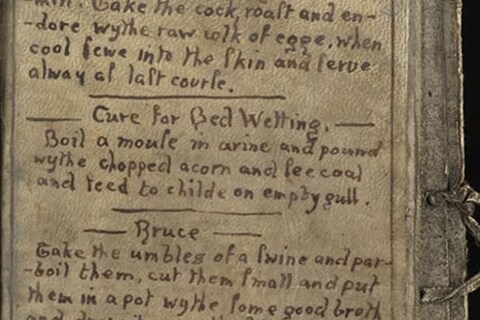 -min. Take the cock, roast and en-
-dore wythe raw yolk of egge, when
cool sewe into the skin and serve
alway at last course.
Cure for Bed Wetting.
Boil a mouse in urine and pound
wythe chopped acorn and seecoal
and feed to childe on empty gull.
Bruce
Take the umbles of a swine and par-
-boil them, cut them small and put
them in a pot wythe some good broth